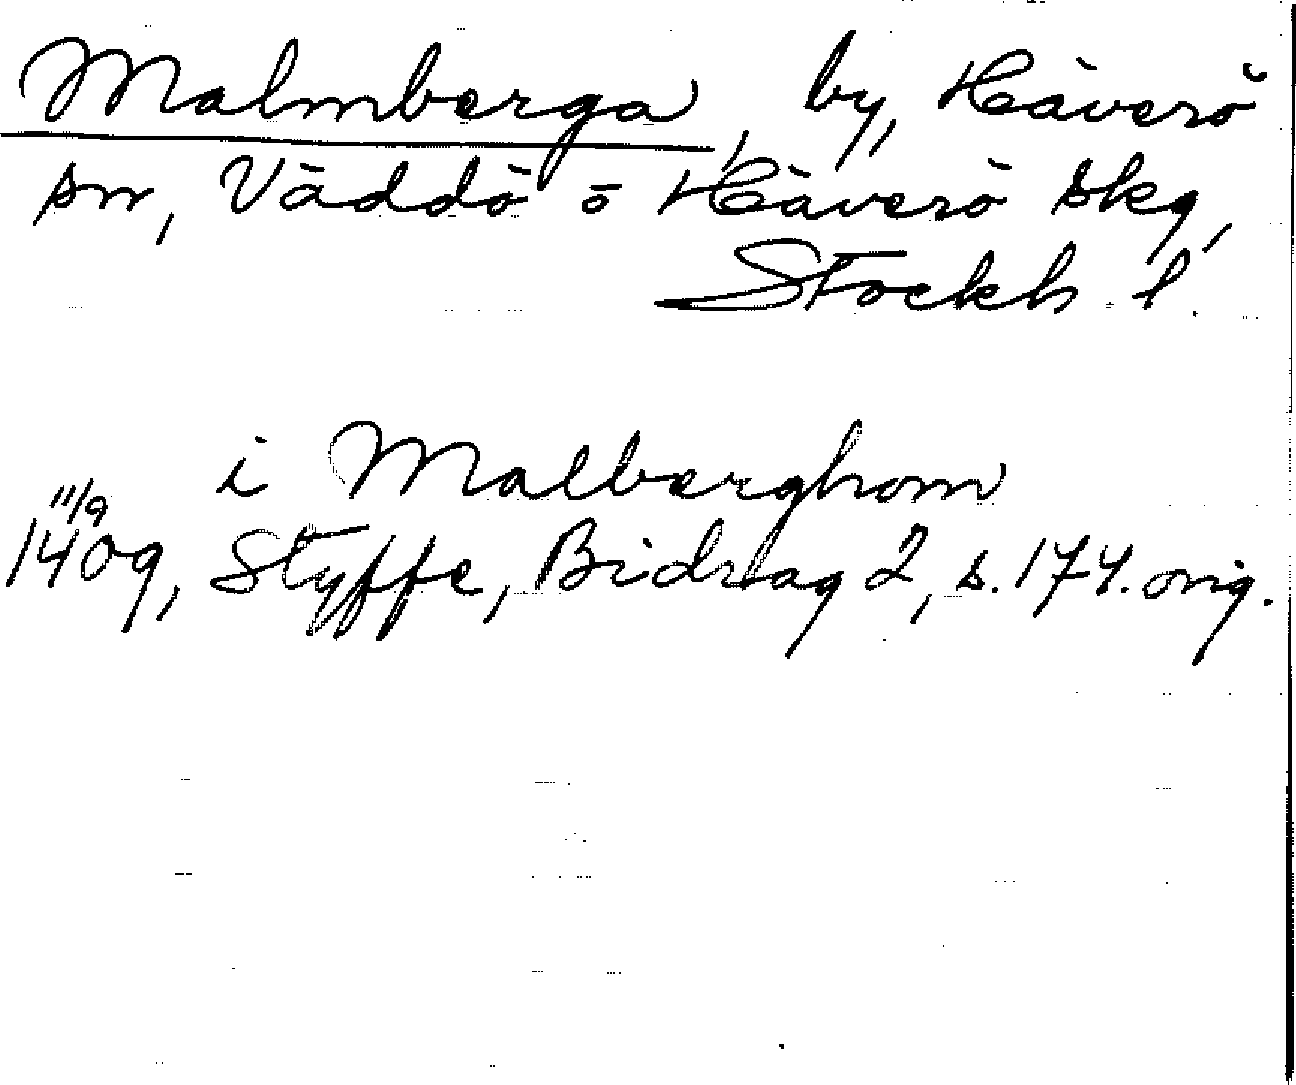 Malmberga, by, Häverö
sn, Väddö o Häverö skg,
Stockh. l.
i Malberghom
11/9
1409, Styffe, Bidrag 2, s. 174. orig.